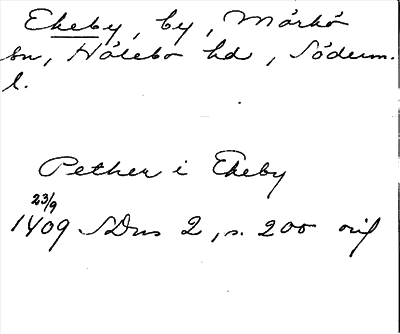 Ekeby, by, Mörkö
sn, Hölebo hd, Söderm.
l.
Pether i Ekeby
23/9
1409 SDns 2, s. 200 orig